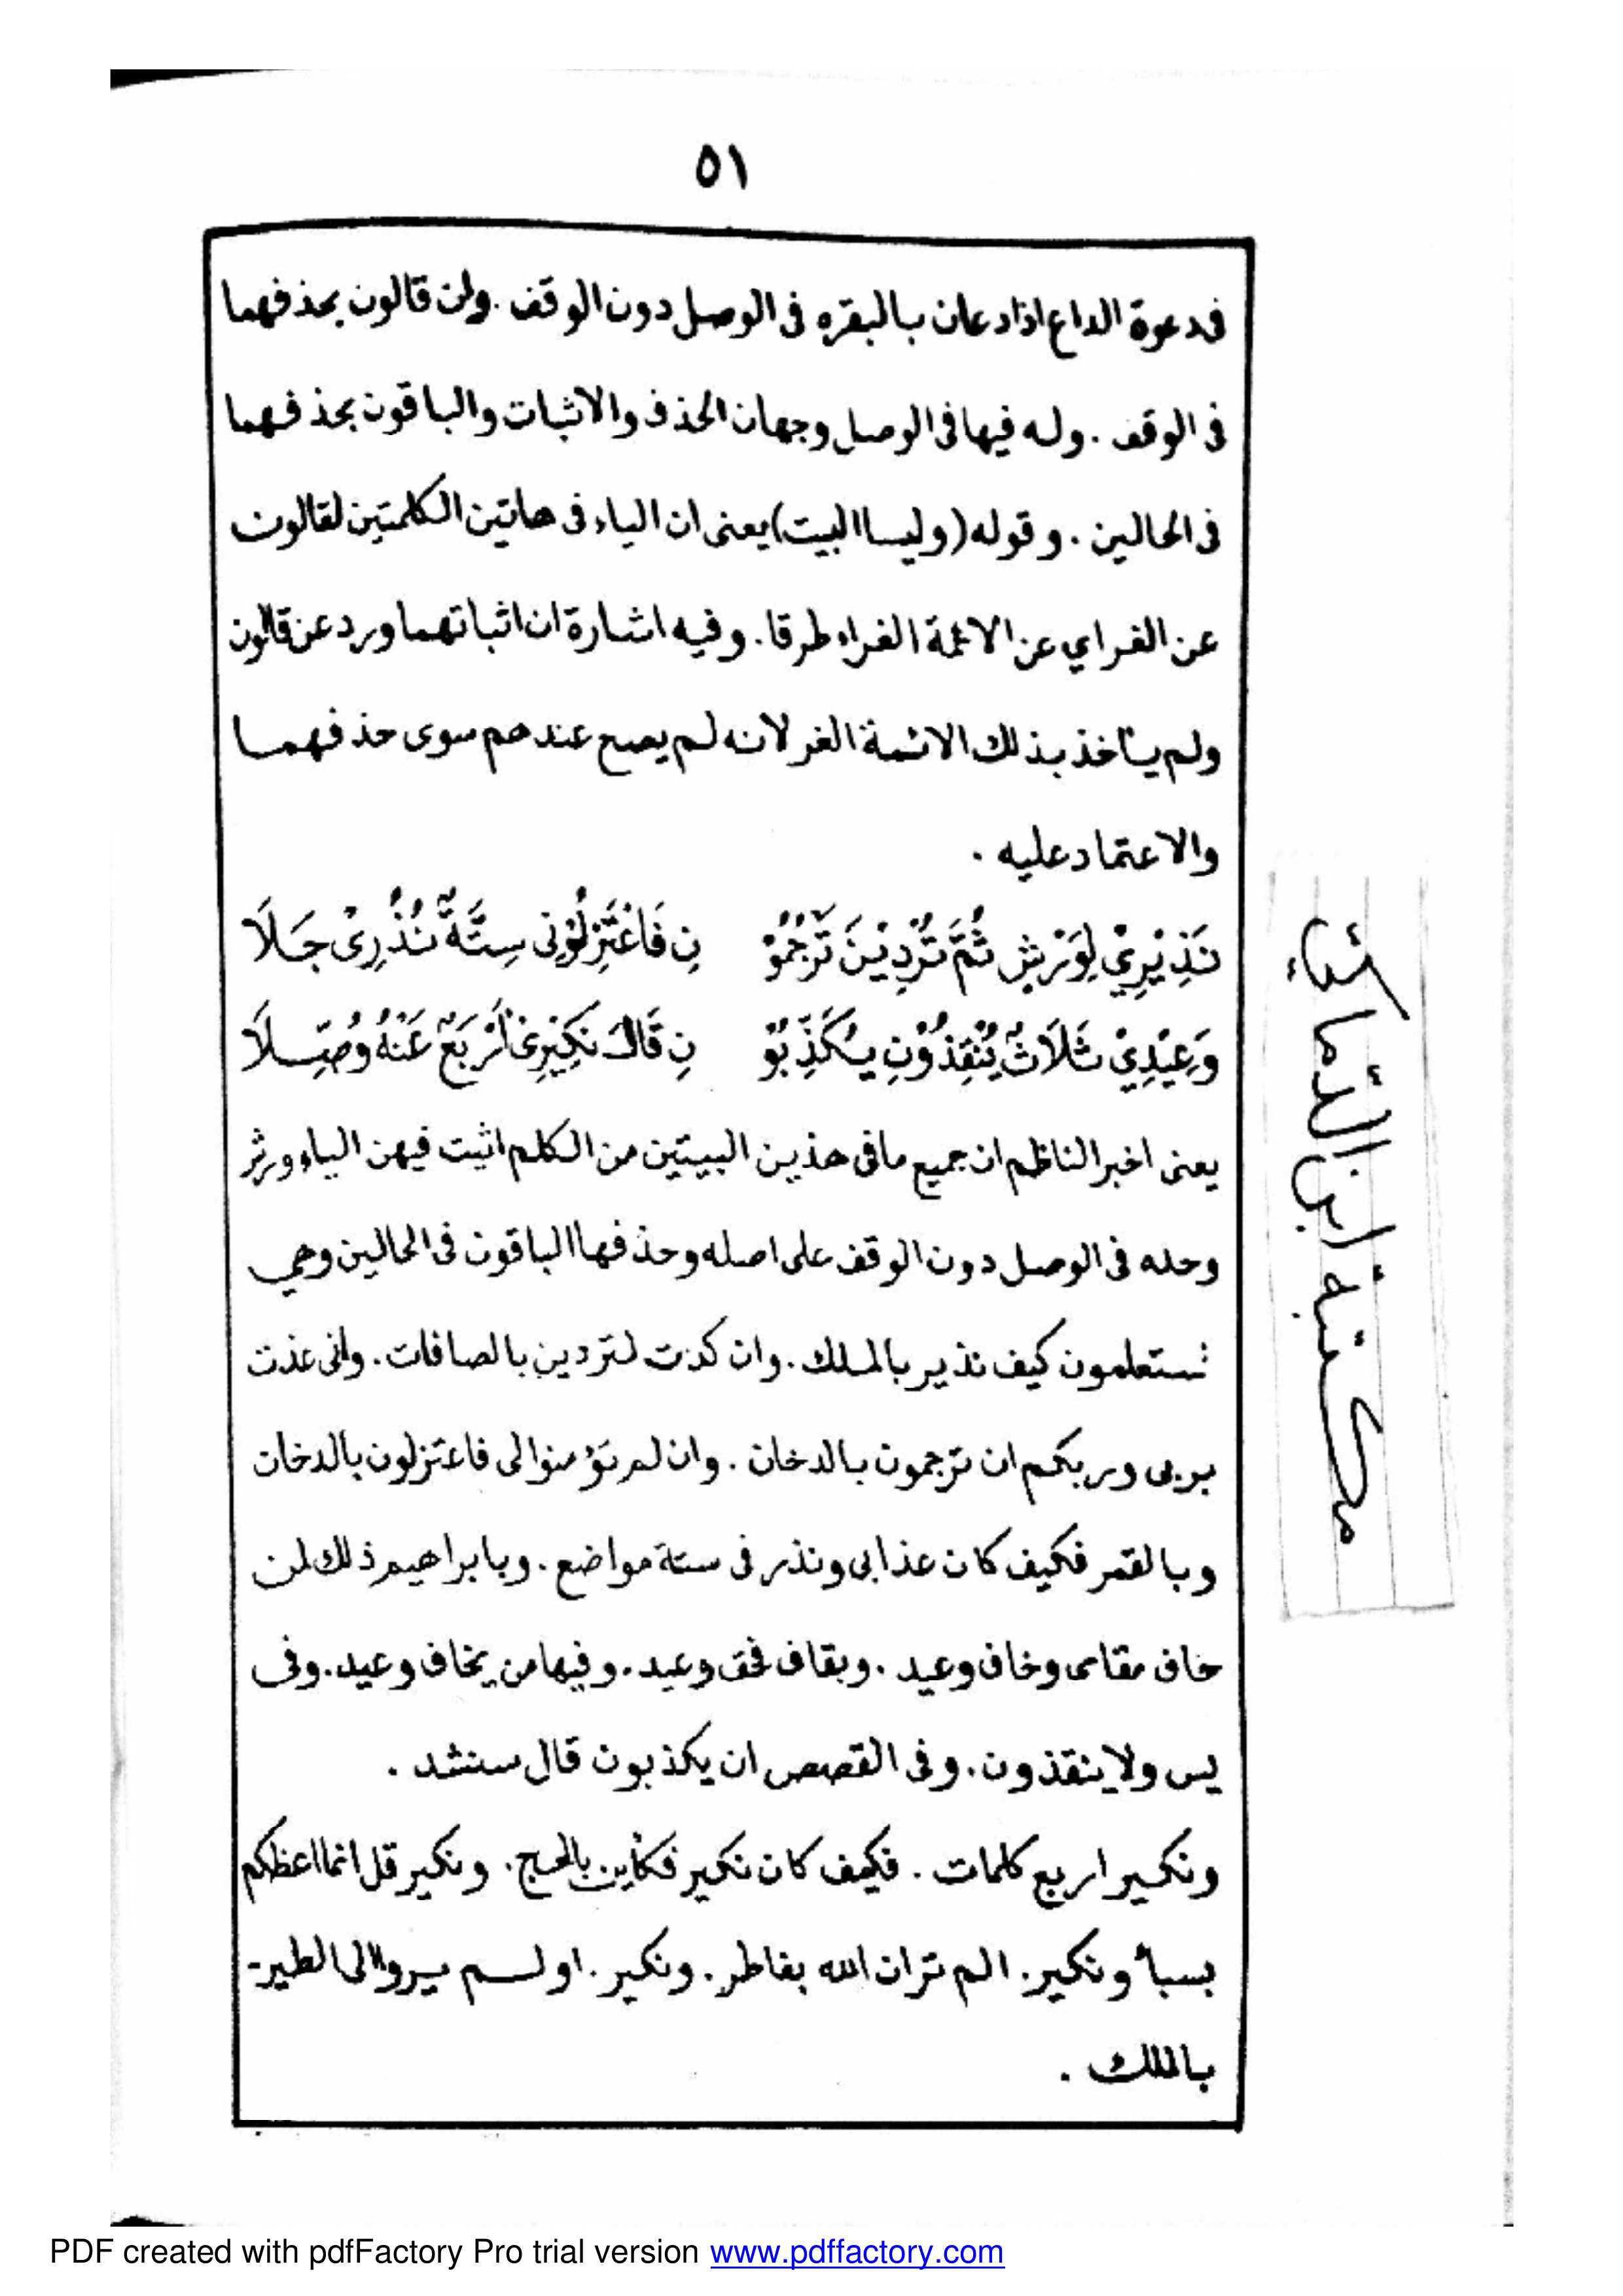 ٥١
فى دعوة الداع اذا دعان بالبقره فى الوصل دون الوقف . ولن قالون بحذفهما
فى الوقف . وله فيها فى الوصل وجهان الحذف والاثبات والباقون بحذفهما
فى الحالين . وقوله (وليسا البيت) يعنى ان الياء فى هاتين الكلمتين لقالون
عن الغراي عن الائمة الغراء طرقا . وفيه اشارة ان اثباتهما ورد عن قالون
ولم يأخذ بذلك الائمة الغر لانه لم يصح عندهم سوى حذفهما
والاعتماد عليه .
نَذِيْرِيْ لِوَرْشٍ ثُمَّ تُرْدِيْنَ تَرْجُمُوْ نِ فَاعْتَزِلُوْنِى سِتَّةٌ نُذُرِىْ جَلَا
وَعِيْدِيْ ثَلَاثٌ يُنْقِذُوْنِ يُكَذِّبُوْ نِ قَالَ نَكِيْرِىْ أَرْبَعٌ عَنْهُ وُصِّلَا
يعنى اخبر الناظم ان جميع ما فى هذين البيتين من الكلم اثبت فيهن الياء ورش
وحده فى الوصل دون الوقف على اصله وحذفها الباقون فى الحالين وهي
ستعلمون كيف نذير بالملك . وان كدت لتردين بالصافات . وانى عذت
بربى وربكم ان ترجمون بالدخان . وان لم تؤمنوا لى فاعتزلون بالدخان
وبالقمر فكيف كان عذابى ونذر فى ستة مواضع . وبابراهيم ذلك لمن
خاف مقامى وخاف وعيد . وبقاف فحق وعيد . وفيها من يخاف وعيد . وفى
يس ولا ينقذون . وفى القصص ان يكذبون قال سنشد .
ونكير اربع كلمات . فكيف كان نكير فكأين بالحج . ونكير قل انما اعظكم
بسبأ ونكير . الم تر ان الله بفاطر . ونكير . اولم يروا الى الطير
بالملك .
مكتبة ابن الدماء
PDF created with pdfFactory Pro trial version www.pdffactory.com